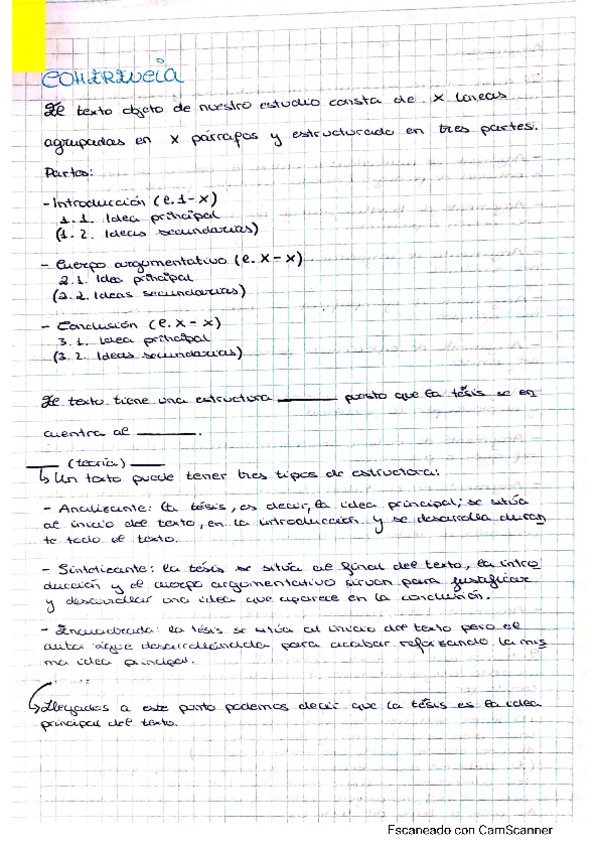 COHERENCIA
El texto objeto de nuestro estudio consta de x líneas
agrupadas en x párrafos y estructurado en tres partes.
Partes:
- Introducción (l. 1 - x)
1. 1. Idea principal
(1. 2. Ideas secundarias)
- Cuerpo argumentativo (l. x - x)
2. 1. Idea principal
(2. 2. Ideas secundarias)
- Conclusión (l. x - x)
3. 1. Idea principal
(3. 2. Ideas secundarias)
El texto tiene una estructura ______ puesto que la tésis se en
cuentra al ______.
___ (teoría) ___
↳ Un texto puede tener tres tipos de estructura:
- Analizante: la tésis, es decir, la idea principal; se sitúa
al inicio del texto, en la introducción y se desarrolla duran
te todo el texto.
- Sintetizante: la tésis se sitúa al final del texto, la intro
ducción y el cuerpo argumentativo sirven para justificar
y desarrollar una idea que aparece en la conclusión.
- Encuadrada: la tésis se sitúa al inicio del texto pero el
autor sigue desarrollándola para acabar reforzando la mis
ma idea principal.
↳ Llegados a este punto podemos decir que la tésis es la idea
principal del texto.
Escaneado con CamScanner